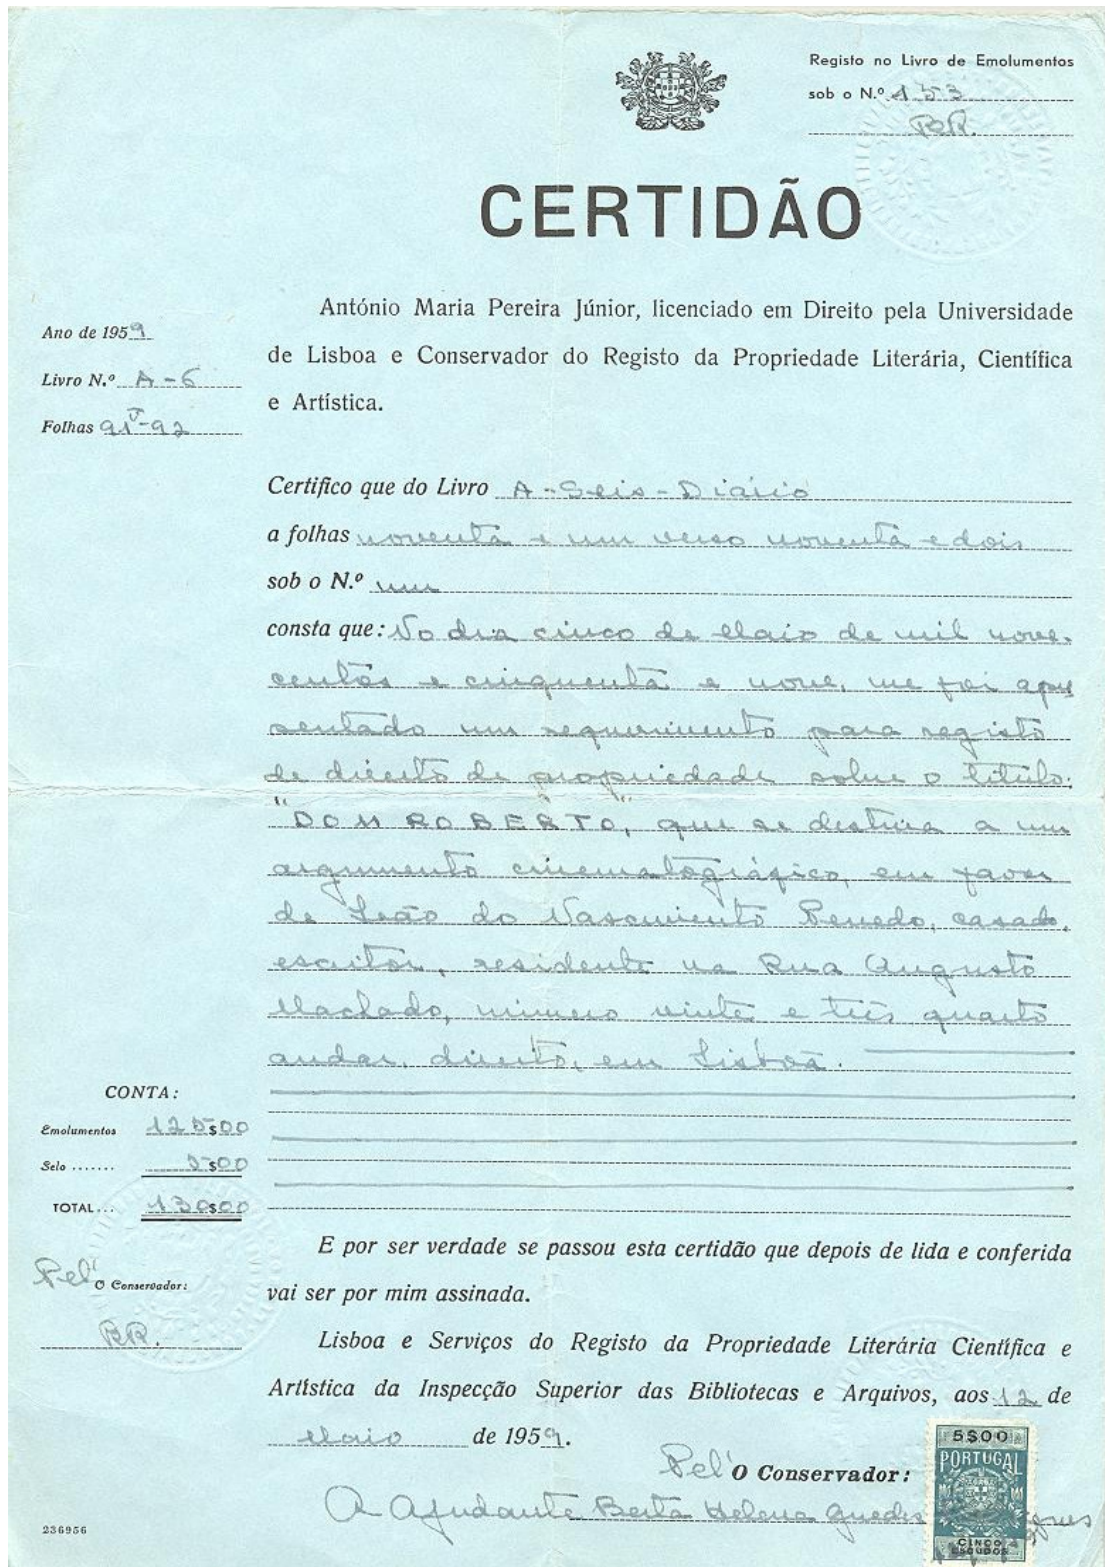 Registo no Livro de Emolumentos
sob o N.º 153
BR.
CERTIDÃO
António Maria Pereira Júnior, licenciado em Direito pela Universidade
de Lisboa e Conservador do Registo da Propriedade Literária, Científica
e Artística.
Ano de 1959
Livro N.º A-6
Folhas 91V-92
Certifico que do Livro A-Seis-Diário
a folhas noventa e um verso noventa e dois
sob o N.º um
consta que: No dia cinco de Maio de mil nove-
centos e cinquenta e nove, me foi apre
sentado um requerimento para registo
de direito de propriedade sobre o titulo:
"DOM ROBERTO", que se destina a um
argumento cinematográfico, em favor
de Leão do Nascimento Penedo, casado,
escritor, residente na Rua Augusto
Machado, número vinte e três quarto
andar, direito, em Lisboa.
CONTA:
Emolumentos 125$00
Selo ....... 5$00
TOTAL... 130$00
Pel' O Conservador:
BR.
E por ser verdade se passou esta certidão que depois de lida e conferida
vai ser por mim assinada.
Lisboa e Serviços do Registo da Propriedade Literária Científica e
Artística da Inspecção Superior das Bibliotecas e Arquivos, aos 12 de
Maio de 1959.
Pel' O Conservador:
A Ajudante Berta Helena Guedes
5$00
PORTUGAL
CINCO
ESCUDOS
236956